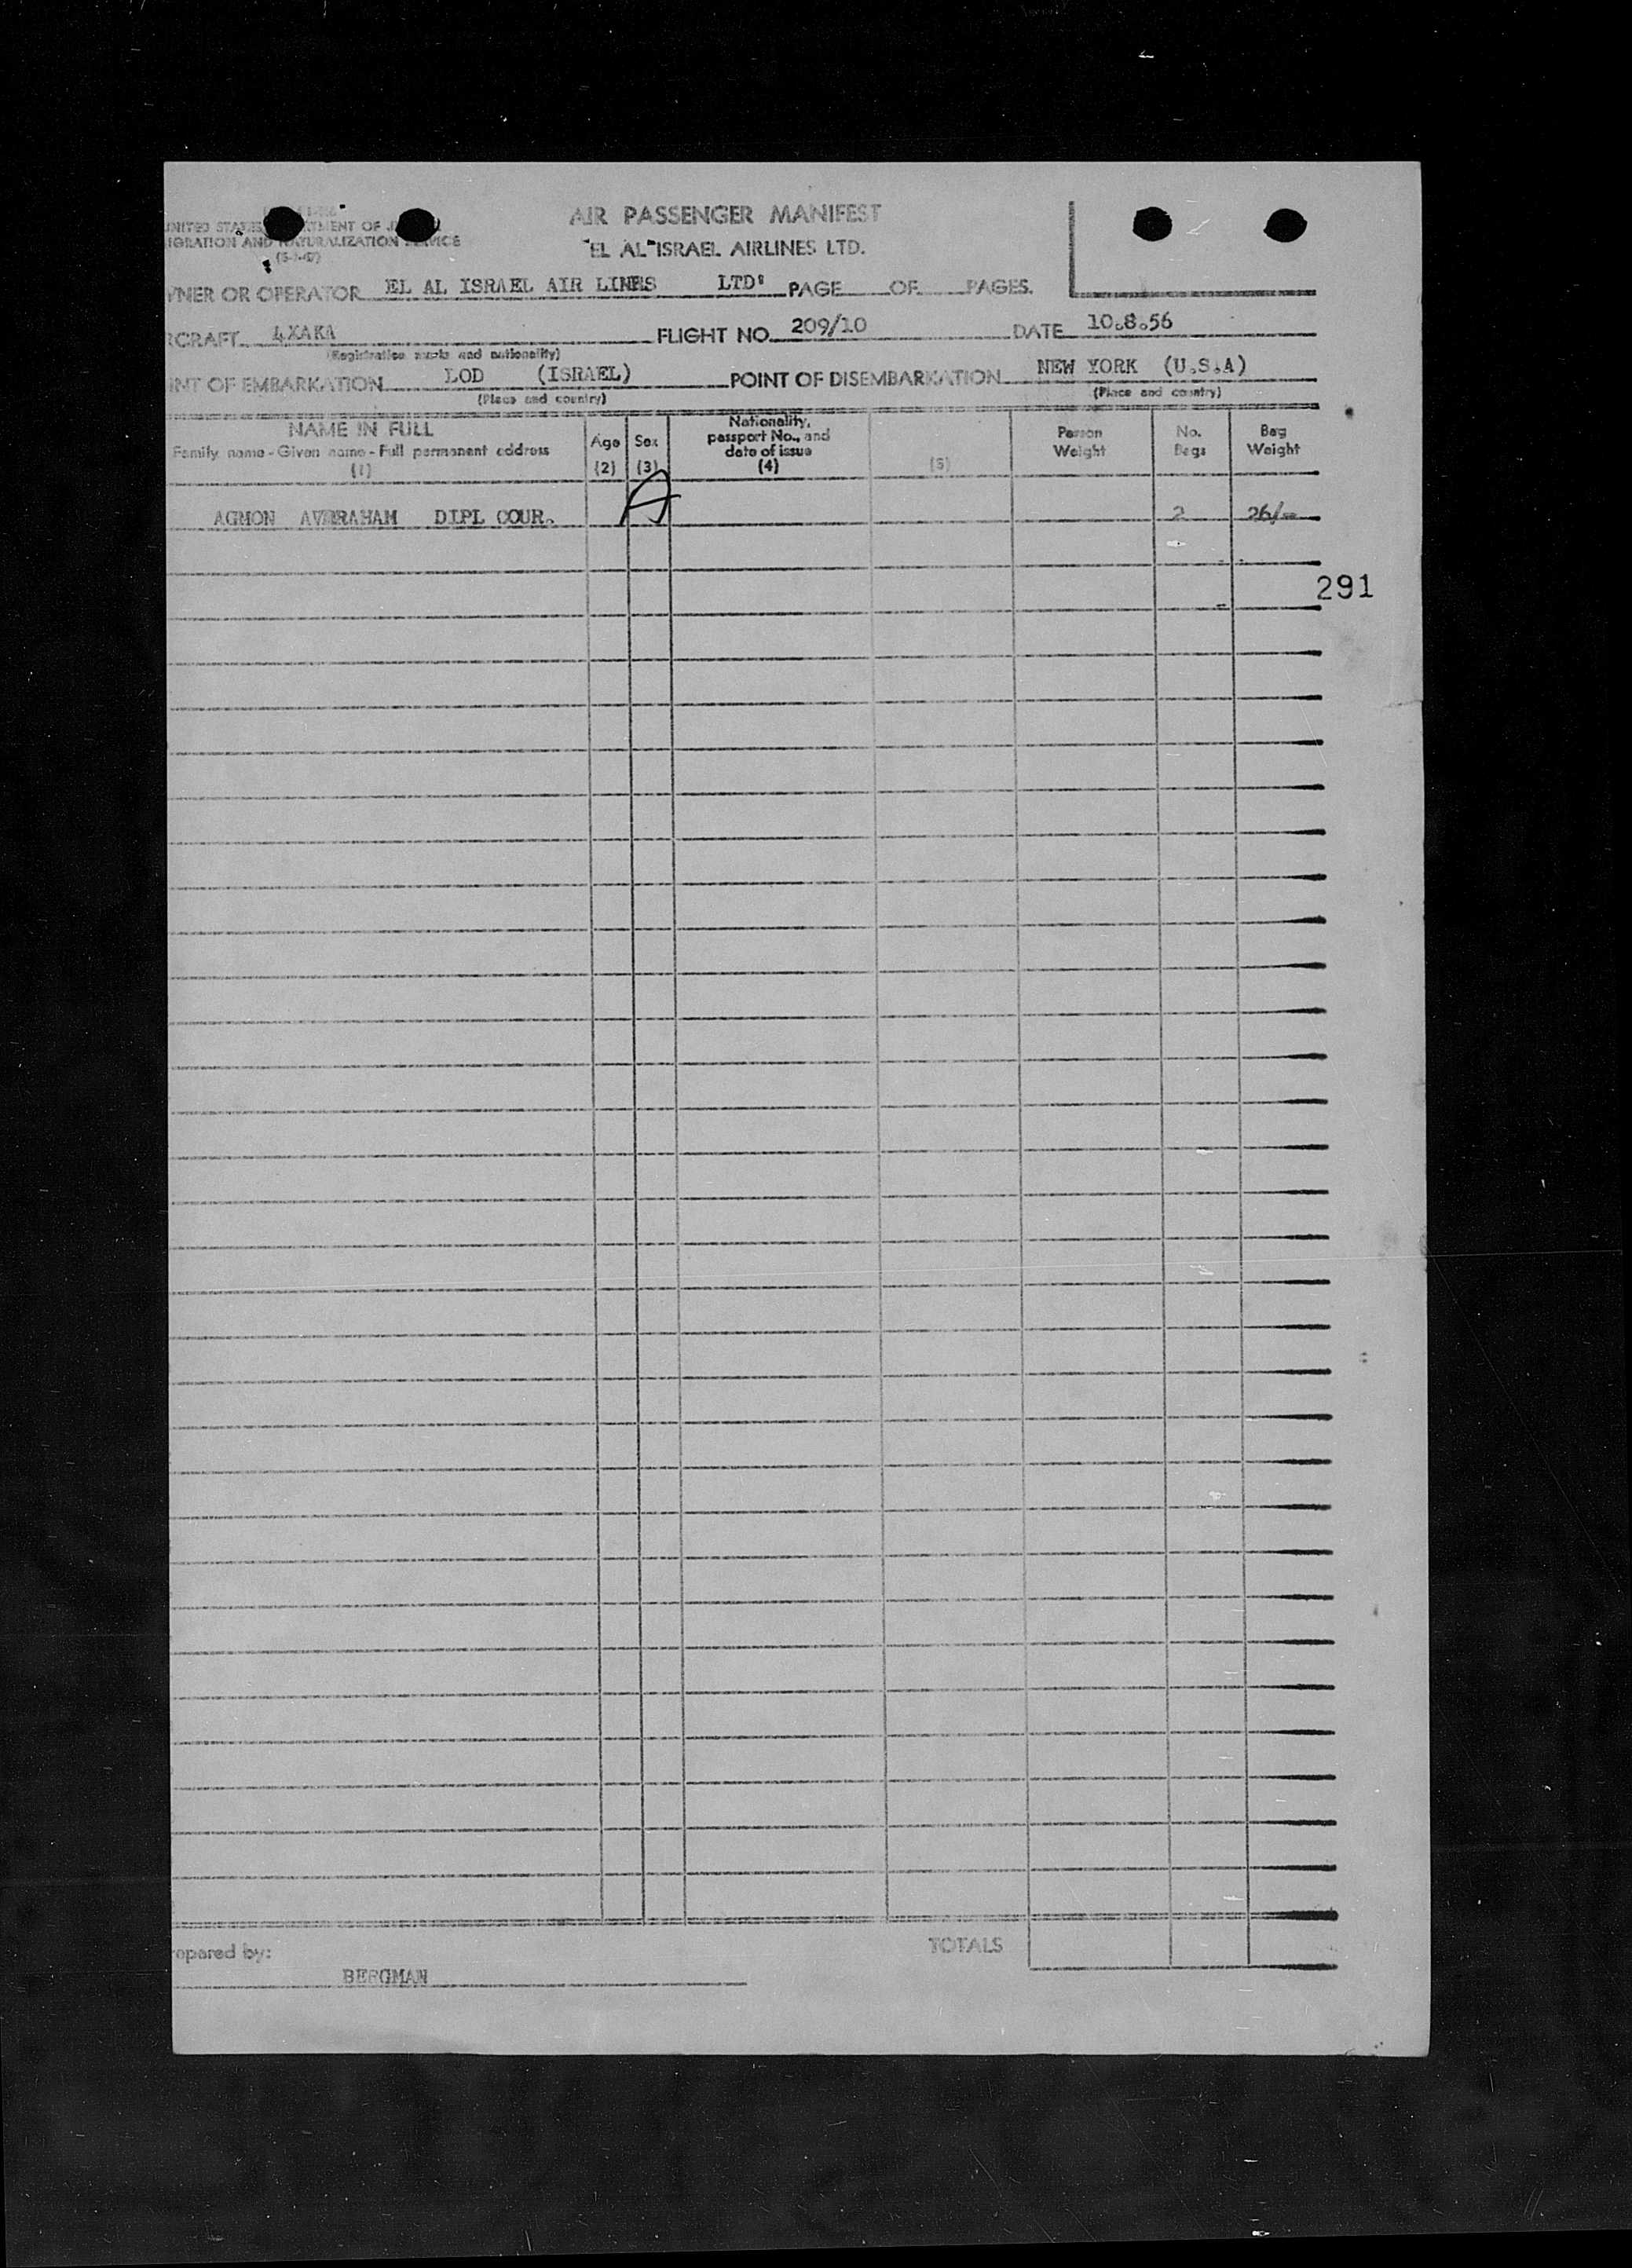 AIR PASSENGER MANIFEST
UNITED STATES TMENT OF J
IGRATION AND NATURALIZATION SERVICE
"EL AL" ISRAEL AIRLINES LTD.
WNER OR OPERATOR EL AL ISRAEL AIR LINES LTD' PAGE OF PAGES.
RCRAFT 4XAKA FLIGHT NO. 209/10 DATE 10.8.56
(Registration marks and nationality)
INT OF EMBARKATION LOD (ISRAEL) POINT OF DISEMBARKATION NEW YORK (U.S.A)
(Place and country) (Place and country)
NAME IN FULL Age Sex Nationality, passport No., and date of issue Person Weight No. Bags Bag Weight
Family name - Given name - Full permanent address
(1) (2) (3) (4) (5)
A
AGMON AVRAHAM DIPL COUR. 2 26/-
291
epared by: TOTALS
BERGMAN